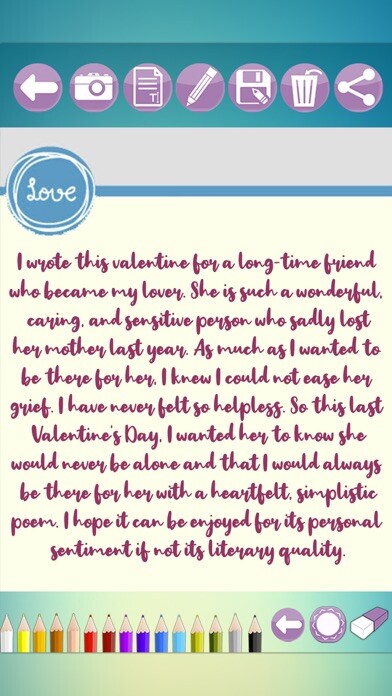 Love
I wrote this valentine for a long-time friend
who became my lover. She is such a wonderful,
caring, and sensitive person who sadly lost
her mother last year. As much as I wanted to
be there for her, I knew I could not ease her
grief. I have never felt so helpless. So this last
Valentine's Day, I wanted her to know she
would never be alone and that I would always
be there for her with a heartfelt, simplistic
poem. I hope it can be enjoyed for its personal
sentiment if not its literary quality.